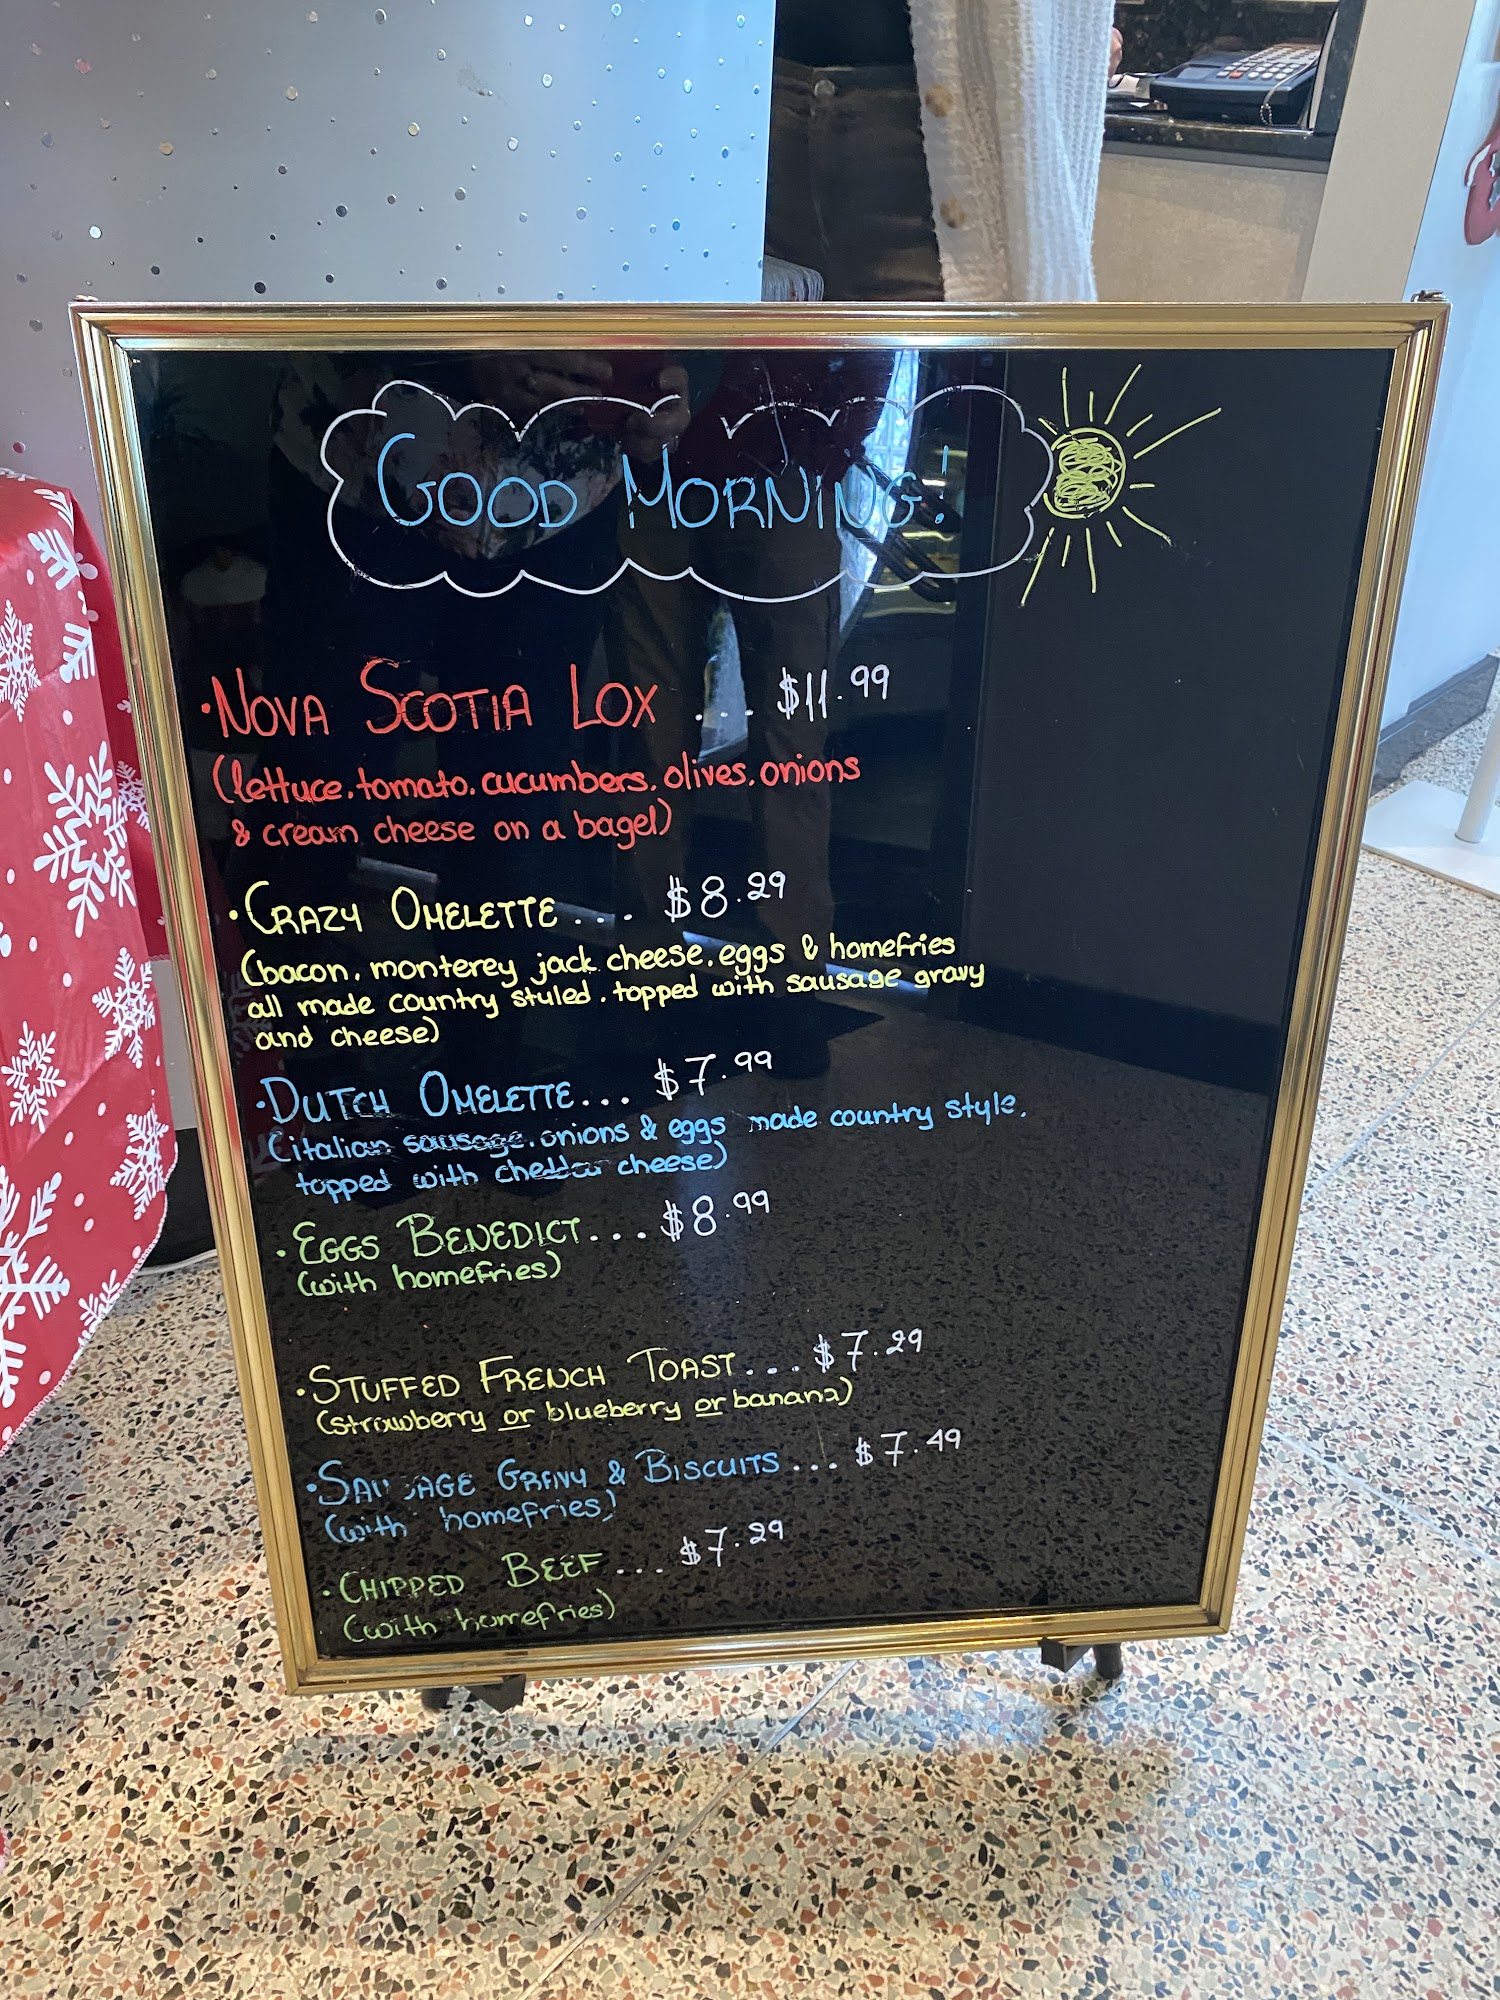 GOOD MORNING!
• NOVA SCOTIA LOX ... $11.99
(lettuce, tomato, cucumbers, olives, onions
& cream cheese on a bagel)
• CRAZY OMELETTE... $8.29
(bacon, monterey jack cheese, eggs & homefries
all made country styled, topped with sausage gravy
and cheese)
• DUTCH OMELETTE... $7.99
(italian sausage, onions & eggs made country style,
topped with cheddar cheese)
• EGGS BENEDICT... $8.99
(with homefries)
• STUFFED FRENCH TOAST... $7.29
(strawberry or blueberry or banana)
• SAUSAGE GRAVY & BISCUITS... $7.49
(with homefries)
• CHIPPED BEEF... $7.29
(with homefries)